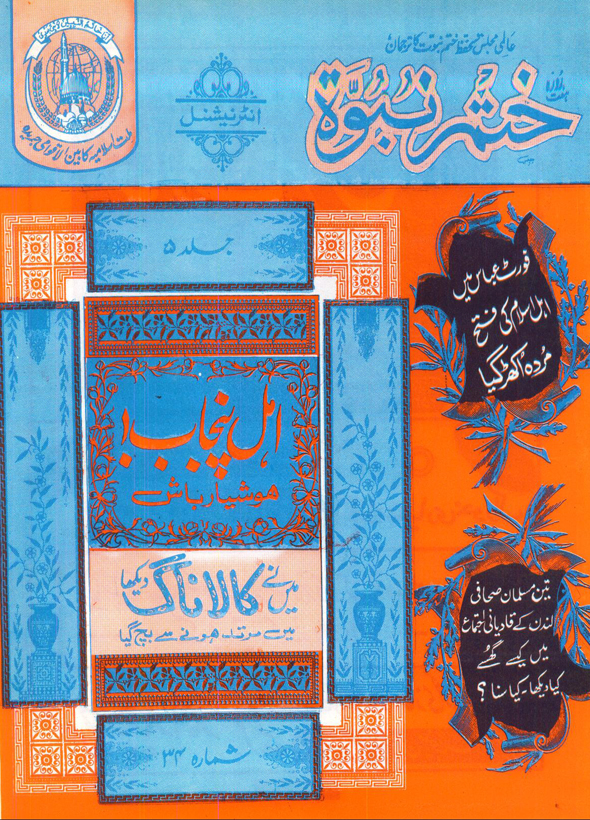 عالمی مجلس تحفظ ختم نبوت کا ترجمان
ہفت روزہ
ختم نبوۃ
انٹرنیشنل
جلد ۵
فورٹ عباس میں
اہل اسلام کی فتح
مردہ اکھڑ گیا
اہل پنجاب!
ہوشیار باش
میں نے کالا ناگ دیکھا
میں مرتد ہونے سے بچ گیا
تین مسلمان صحافی
لندن کے قادیانی اجتماع
میں کیسے گھسے
کیا دیکھا۔ کیا سنا؟
شمارہ ۳۴